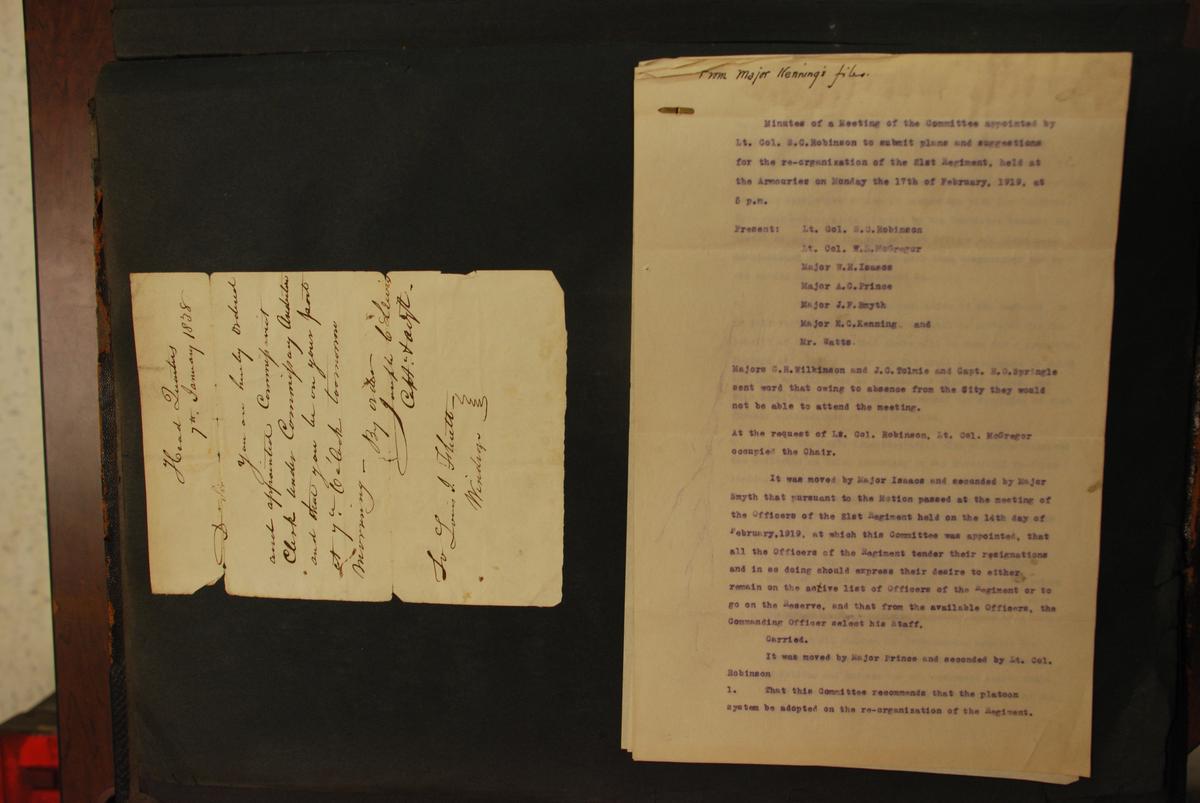 Head Quarters
7th January 1838
You are hereby ordered
and appointed Commissariat
Clerk under Commissary
and that you be on your post
at 6 o'Clock tomorrow
Morning — By order
Joseph C Lewis
To Louis J.
Windsor
From Major Kenning's files.
Minutes of a Meeting of the Committee appointed by
Lt. Col. S.C.Robinson to submit plans and suggestions
for the re-organization of the 21st Regiment, held at
the Armouries on Monday the 17th of February, 1919, at
5 p.m.
Present: Lt. Col. S.C.Robinson
Lt. Col. W.L.McGregor
Major W.H.Isaacs
Major A.C.Prince
Major J.F.Smyth
Major E.C.Kenning and
Mr. Watts.
Majors G.H.Wilkinson and J.C.Tolmie and Capt. H.O.Springle
sent word that owing to absence from the City they would
not be able to attend the meeting.
At the request of Lt. Col. Robinson, Lt. Col. McGregor
occupied the Chair.
It was moved by Major Isaacs and seconded by Major
Smyth that pursuant to the Motion passed at the meeting of
the Officers of the 21st Regiment held on the 14th day of
February,1919, at which this Committee was appointed, that
all the Officers of the Regiment tender their resignations
and in so doing should express their desire to either
remain on the active list of Officers of the Regiment or to
go on the Reserve, and that from the available Officers, the
Commanding Officer select his Staff.
Carried.
It was moved by Major Prince and seconded by Lt. Col.
Robinson
1. That this Committee recommends that the platoon
system be adopted on the re-organization of the Regiment.